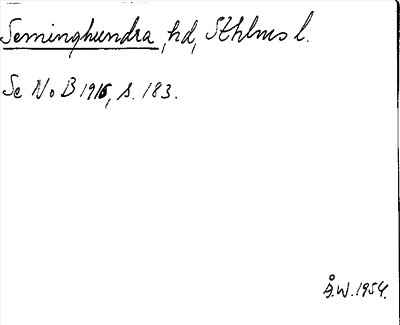 Seminghundra, hd, Sthlms l.
Se NoB 1915, s. 183.
Å.W. 1954.